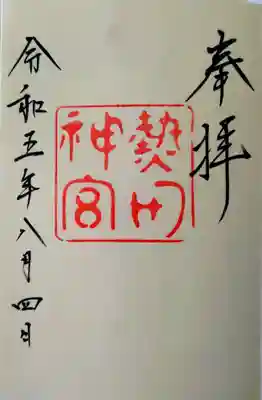 奉拝
熱田
神宮
令和五年八月四日